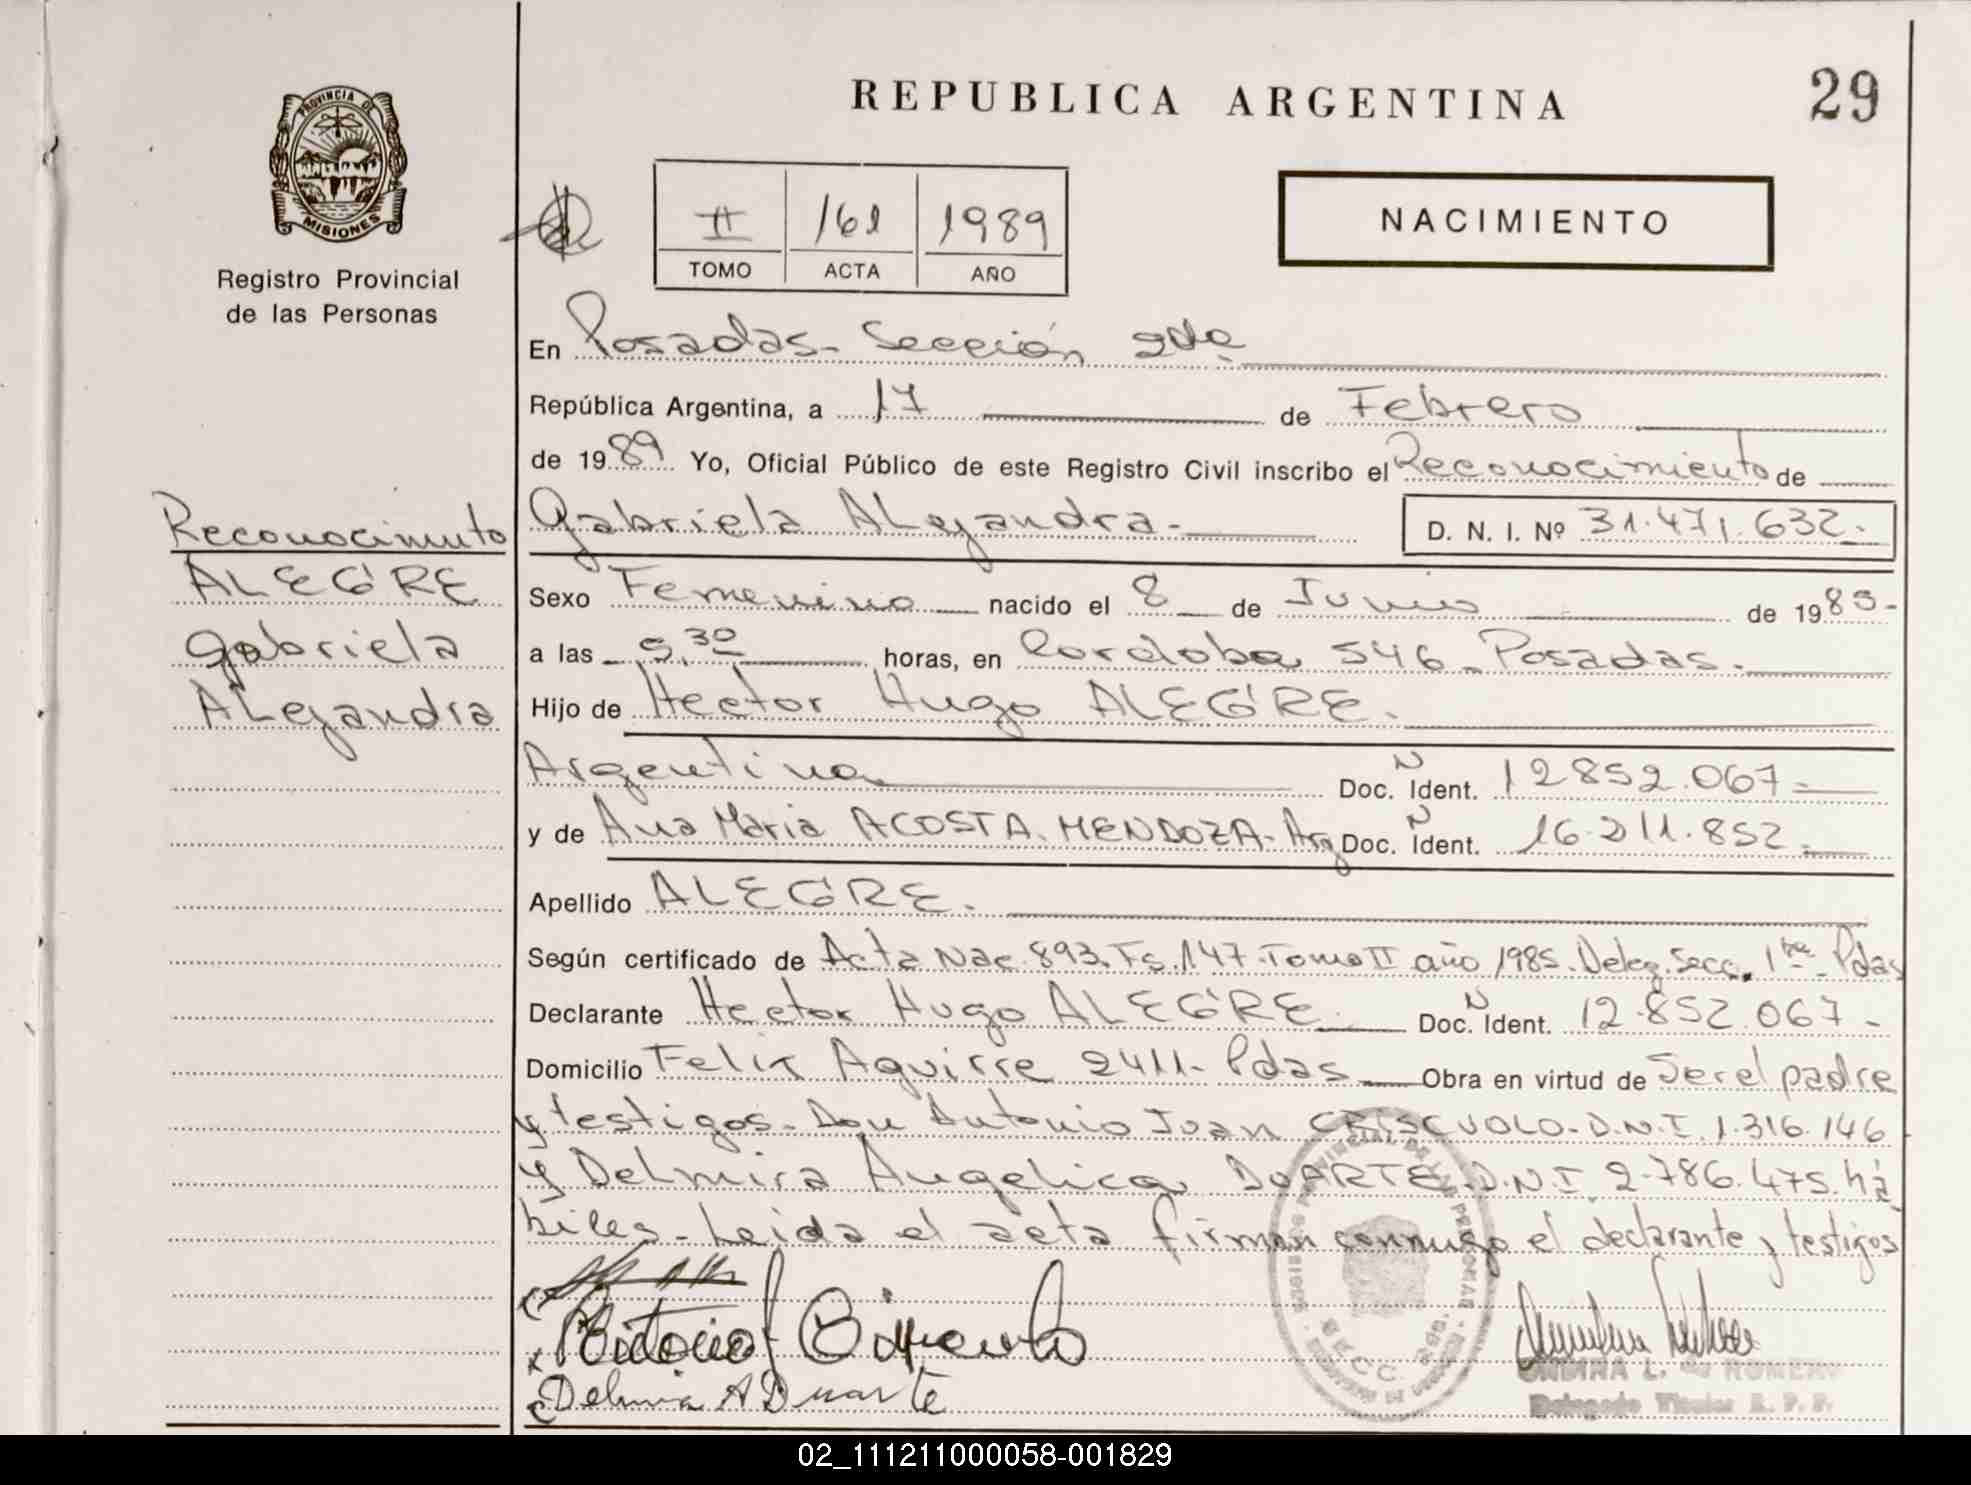 REPUBLICA ARGENTINA
29
PROVINCIA DE
MISIONES
Registro Provincial
de las Personas
II 161 1989
TOMO ACTA AÑO
NACIMIENTO
En Posadas - Sección 2da
República Argentina, a 17 de Febrero
de 1989 Yo, Oficial Público de este Registro Civil inscribo el Reconocimiento de
Gabriela ALejandra.- D. N. I. Nº 31.471.632.-
Sexo Femenino nacido el 8 de Junio de 1985-
a las 5,30 horas, en Cordoba 546 - Posadas.-
Hijo de Hector Hugo ALEGRE.
Argentina Doc. N Ident. 12852.067.-
y de Ana Maria ACOSTA. MENDOZA - Arg Doc. N Ident. 16.211.852.-
Apellido ALEGRE.
Según certificado de Acta Nac. 893. Fs. 147. Tomo II año 1985. Deleg. Secc. 1ra - Pdas
Declarante Hector Hugo ALEGRE. Doc. N Ident. 12.852.067.-
Domicilio Felix Aguirre 2411 - Pdas Obra en virtud de ser el padre
y testigos. Don Antonio Juan CRISCUOLO - D.N.I. 1.316.146
y Delmira Angelica DUARTE. D.N.I. 2.786.475. há
biles. Leida el acta firman conmigo el declarante y testigos
Reconocimnto
ALEGRE
Gabriela
ALejandra
Delmira A Duarte
ROMERO
Delegado Titular R. P. P.
02_111211000058-001829